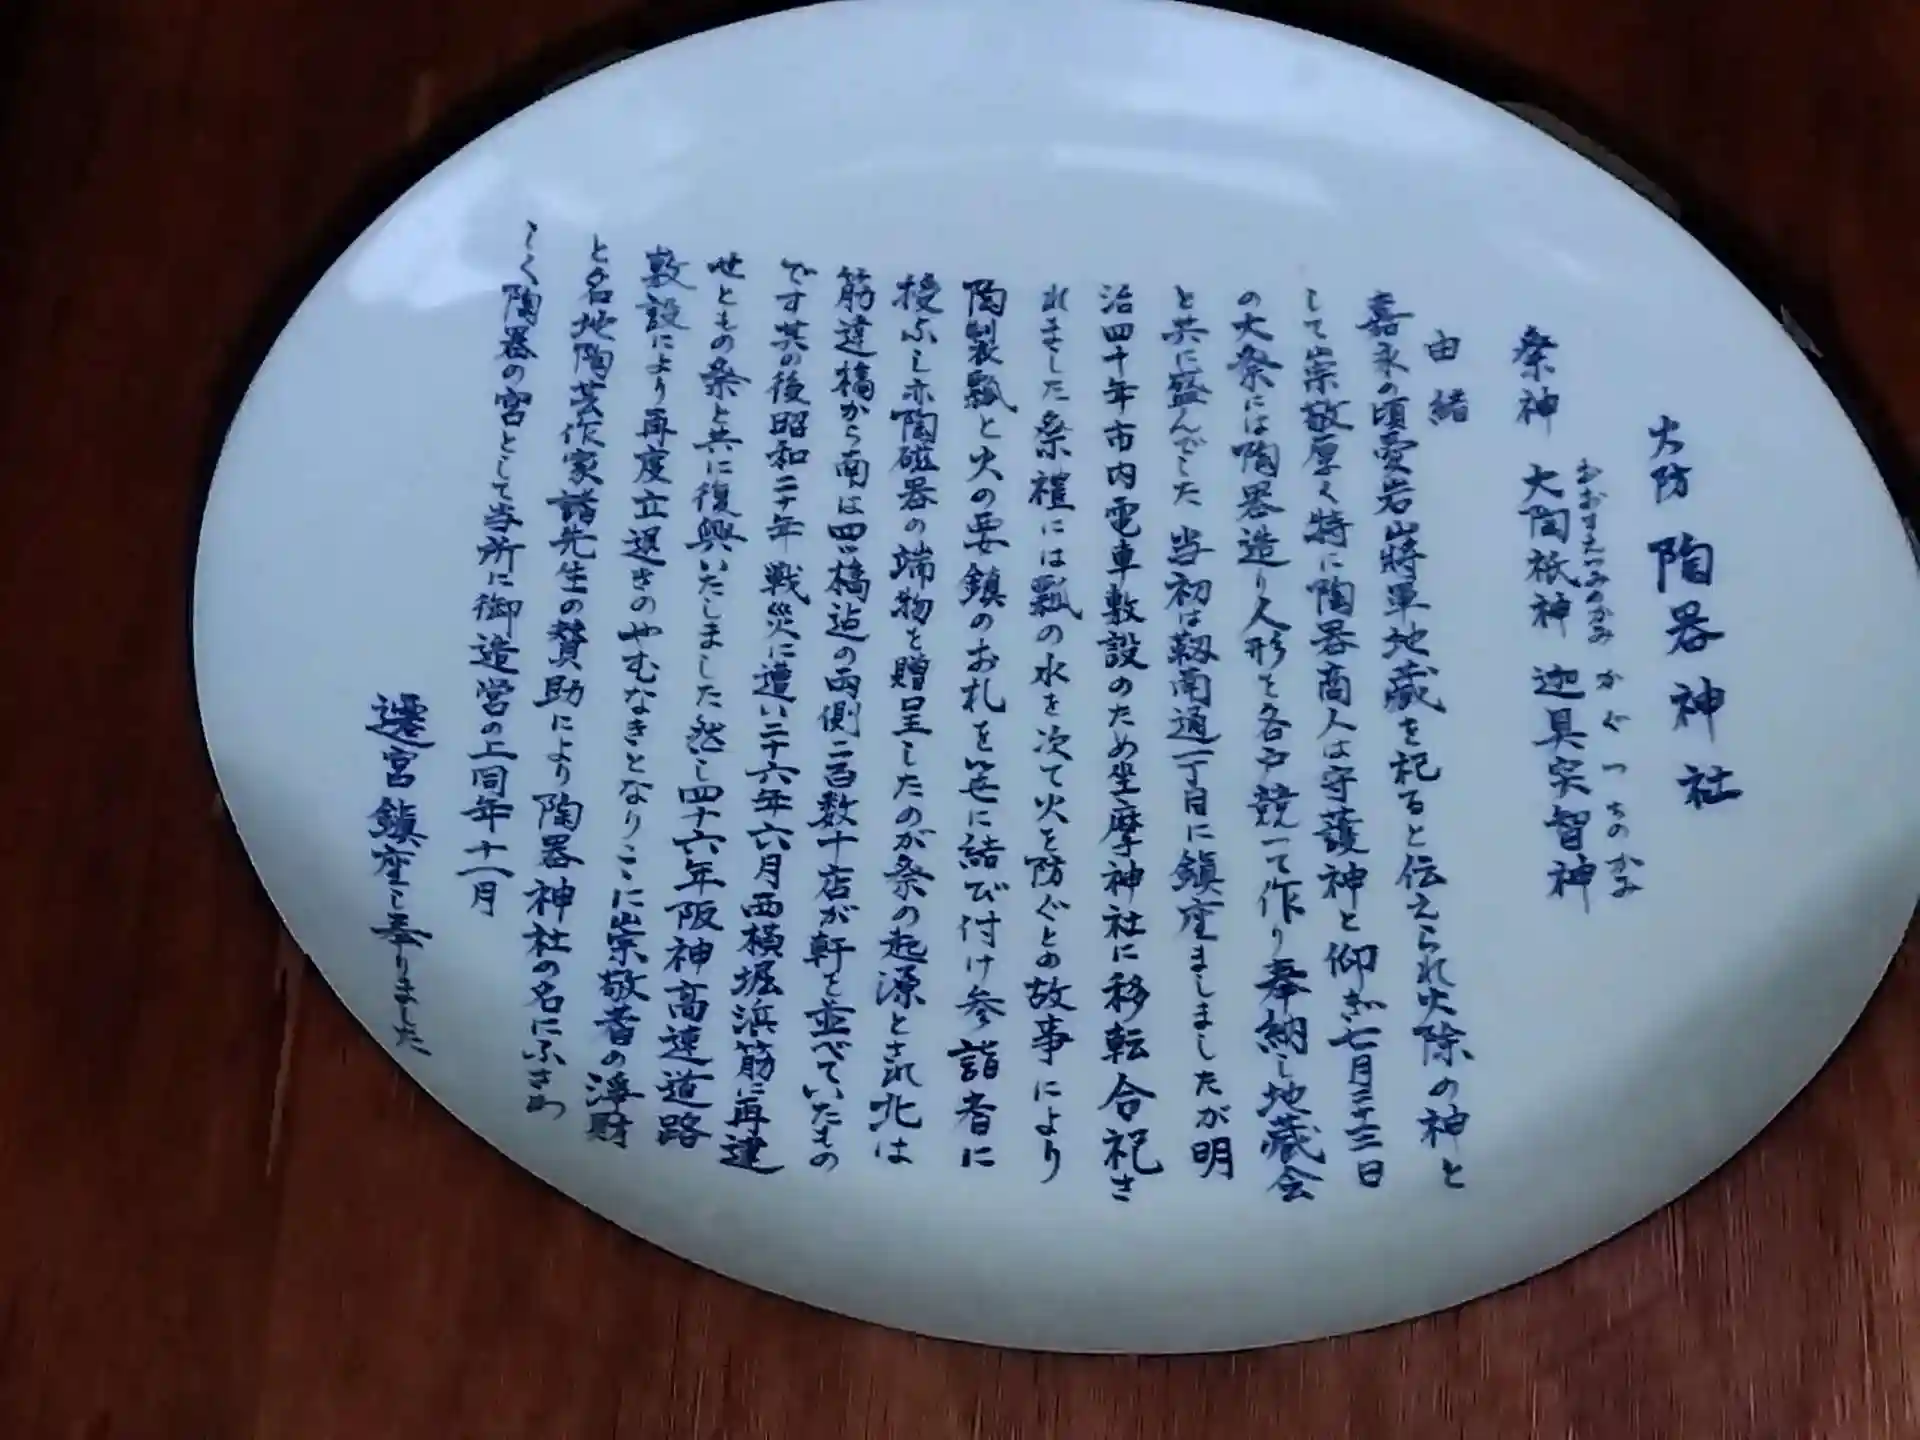 火防 陶器神社
祭神 大陶祇神 迦具突智神
おおすえつみのかみ かぐつちのかみ
由緒
嘉永の頃愛宕山将軍地蔵を祀ると伝えられ火除の神と
して崇敬厚く特に陶器商人は守護神と仰ぎ七月二十三日
の大祭には陶器造り人形を各戸競って作り奉納し地蔵会
と共に盛んでした 当初は靱南通一丁目に鎮座ましましたが明
治四十年市内電車敷設のため坐摩神社に移転合祀さ
れました祭禮には瓢の水を次て火を防ぐとの故事により
陶製瓢と火の要鎮のお札を笹に結び付け参詣者に
授ふし亦陶磁器の端物を贈呈したのが祭の起源とされ北は
筋違橋から南は四ツ橋迠の両側二百数十店が軒を並べていたもの
です其の後昭和二十年戦災に遭い二十六年六月西横堀浜筋に再建
せともの祭と共に復興いたしました然し四十六年阪神高速道路
敷設により再度立退きのやむなきとなりここに崇敬者の浄財
と名地陶芸作家諸先生の賛助により陶器神社の名にふさわ
しく陶器の宮として当所に御造営の上同年十一月
遷宮鎮座し奉りました